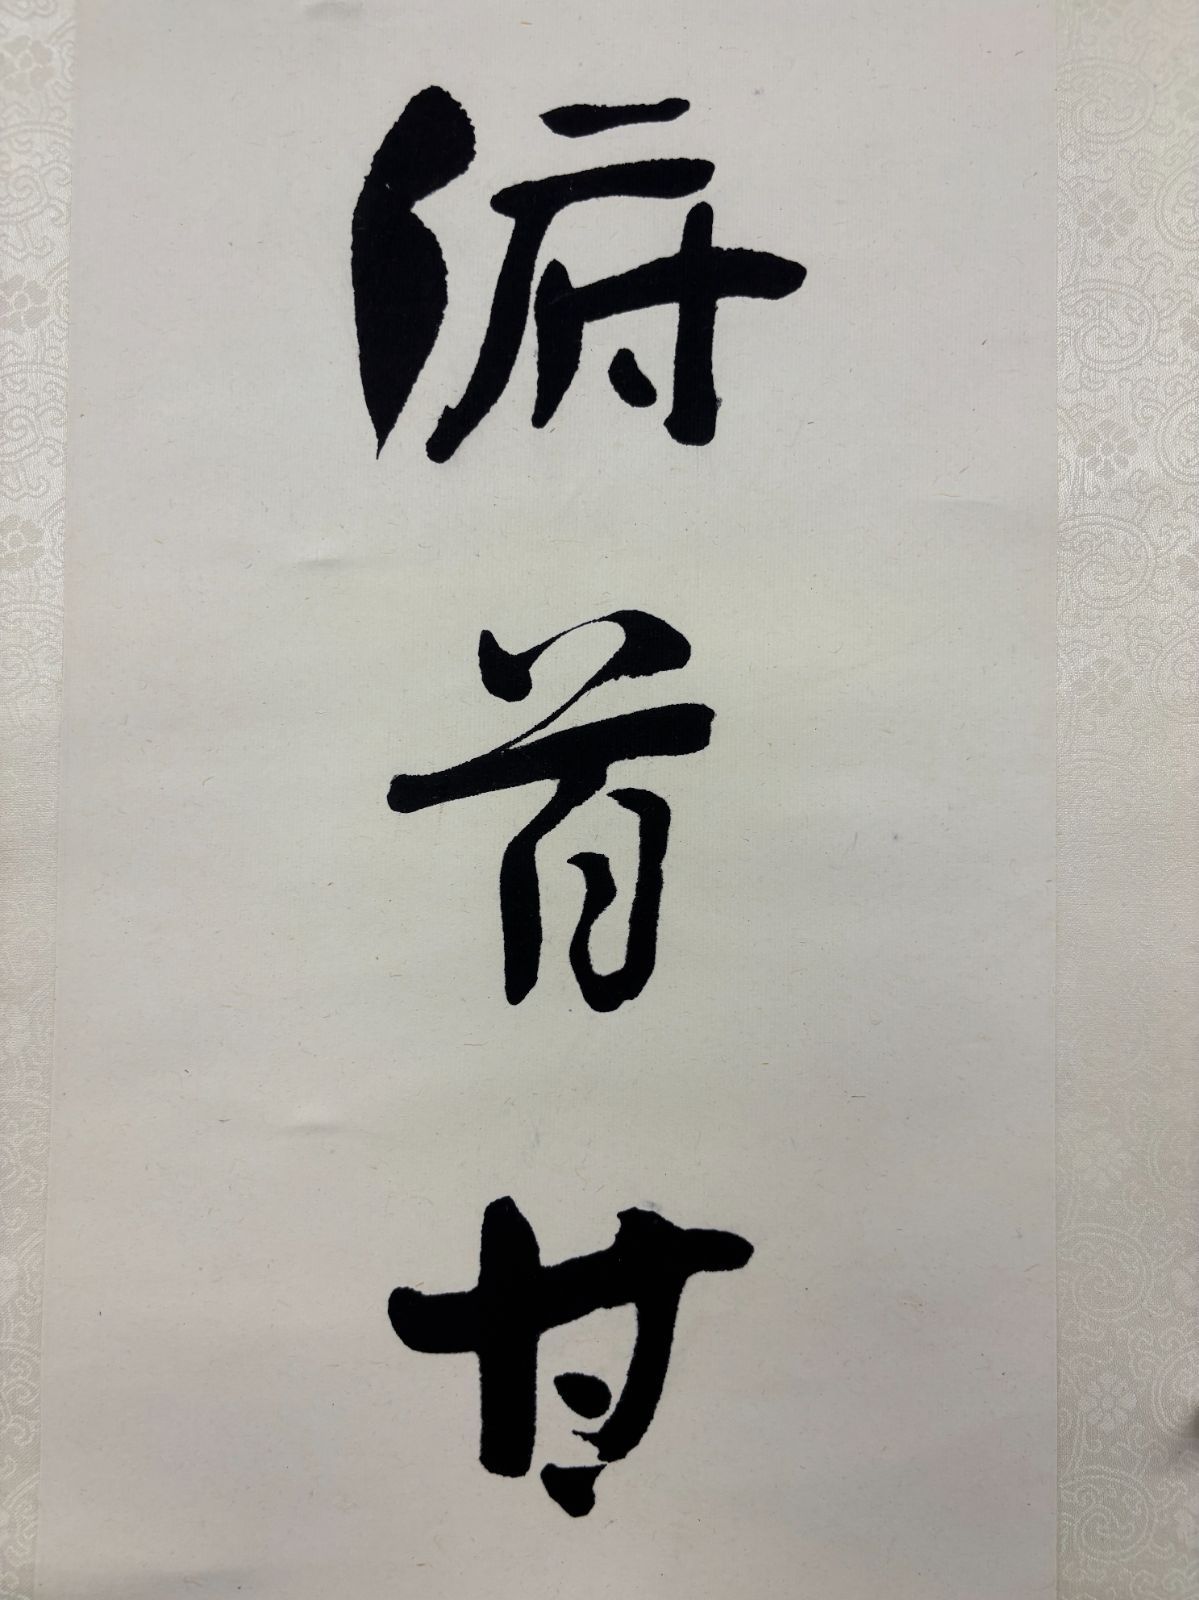 俯首甘